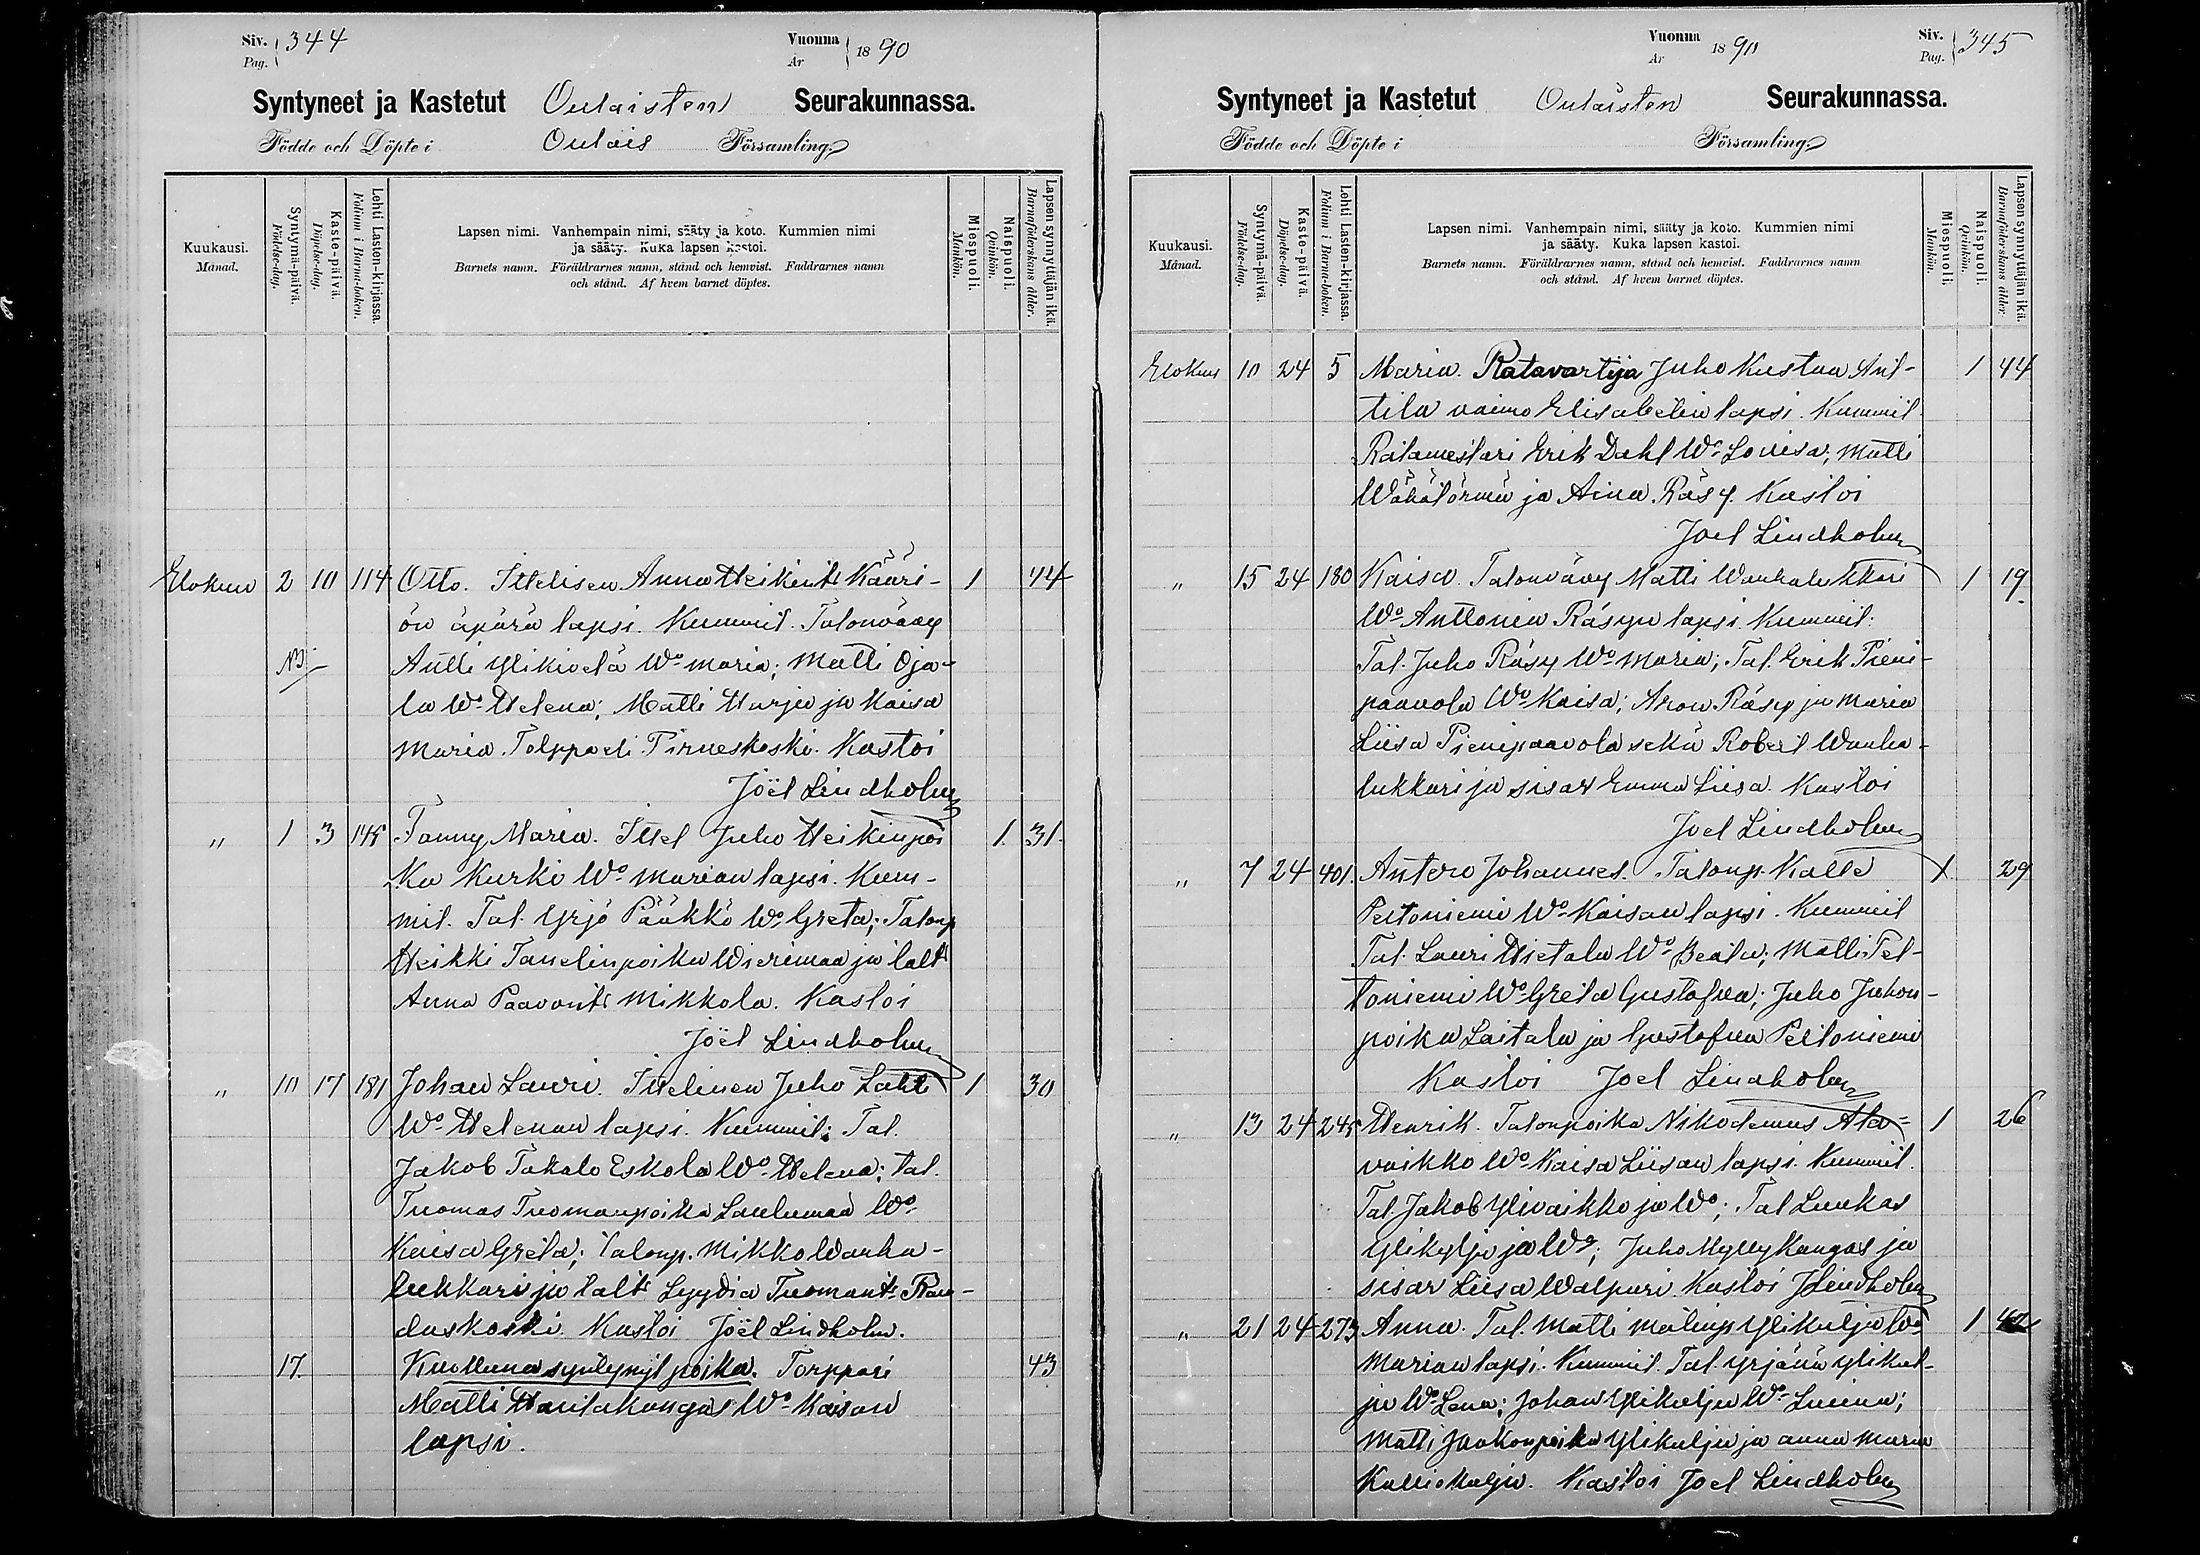 Siv. 344
Pag.
Vuonna 1890
År
Syntyneet ja Kastetut Oulaisten Seurakunnassa.
Födde och Döpte i Oulais Församling
Kuukausi.
Månad.
Syntymä-päivä.
Födelse-dag.
Kaste-päivä.
Döpelse-dag.
Lehti Lasten-kirjassa.
Folium i Barna-boken.
Lapsen nimi. Vanhempain nimi, sääty ja koto. Kummien nimi
ja sääty. Kuka lapsen kastoi.
Barnets namn. Föräldrarnes namn, stånd och hemvist. Faddrarnes namn
och stånd. Af hvem barnet döptes.
Miespuoli.
Mankön.
Naispuoli.
Qvinkön.
Lapsen synnyttäjän ikä.
Barnaföderskans ålder.
Elokuu 2 10 114 Otto. Ittelisen Anna Heikint. Kääri- 1 44
ön äpärä lapsi. Kummit. Talonväay
NB Antti Ylikivelä Wo Maria; Matti Oja-
la Wo Helena; Matti Harju ja Kaisa
Maria Tolppodi Pirneskoski. Kastoi
Joël Lindholm
" 1 3 145 Fanny Maria. Ittel Juho Heikinpoi 1. 31.
Ka Kurki Wo Marian lapsi. Kum-
mit. Tal. Yrjö Pääkkö Wo Greta; Talonp
Heikki Tanelinpoika Wierimaa ja talt
Anna Paavont. Mikkola. Kastoi
Joël Lindholm
" 10 17 181 Johan Lauri. Ittelinen Juho Lahti 1 30
Wo Helenan lapsi. Kummit: Tal.
Jakob Takalo Eskola Wo Helena; tal.
Tuomas Tuomanpoika Laulumaa Wo
Kaisa Greta; Talonp. Mikko Wanha-
lukkari ja talt Lyydia Tuomant. Rau-
daskoski. Kastoi Joël Lindholm.
17. Kuolluna syntynyt poika. Torppari 43
Matti Hautakangas Wo Kaisan
lapsi.
Vuonna 1890
År
Siv. 345
Pag.
Syntyneet ja Kastetut Oulaisten Seurakunnassa.
Födde och Döpte i Församling
Kuukausi.
Månad.
Syntymä-päivä.
Födelse-dag.
Kaste-päivä.
Döpelse-dag.
Lehti Lasten-kirjassa.
Folium i Barna-boken.
Lapsen nimi. Vanhempain nimi, sääty ja koto. Kummien nimi
ja sääty. Kuka lapsen kastoi.
Barnets namn. Föräldrarnes namn, stånd och hemvist. Faddrarnes namn
och stånd. Af hvem barnet döptes.
Miespuoli.
Mankön.
Naispuoli.
Qvinkön.
Lapsen synnyttäjän ikä.
Barnaföderskans ålder.
Elokuu 10 24 5 Maria. Ratavartija Juho Kustaa Ant- 1 44
tila vaimo Elisabetin lapsi. Kummit
Ratamestari Erik Dahl Wo Lovisa; Matti
Wähätörmä ja Aina Räsy. Kastoi
Joel Lindholm
" 15 24 180 Kaisa. Talonväay Matti Wanhalukkari 1 19
Wo Anttonia Räsyn lapsi. Kummit:
Tal. Juho Räsy Wo Maria; Tal. Erik Pieni-
paavola Wo Kaisa; Aron Räsy ja Maria
Liisa Pienipaavola sekä Robert Wanha-
lukkari ja sisar Emma Liisa. Kastoi
Joel Lindholm
" 7 24 401. Antero Johannes. Talonp. Kalle 1 29
Peltoniemi Wo Kaisan lapsi. Kummit
Tal. Lauri Hietala Wo Beata; Matti Pel-
toniemi Wo Greta Gustafva; Juho Juhon-
poika Laitala ja Gustafva Peltoniemi
Kastoi Joel Lindholm
" 13 24 245 Henrik. Talonpoika Nikodemus Ala- 1 26
vaikko Wo Kaisa Liisan lapsi. Kummit.
Tal. Jakob Ylivaikko ja Wo; Tal Luukas
Ylikylju ja Wo; Juho Myllykangas ja
sisar Liisa Walpuri. Kastoi J Lindholm
" 21 24 273 Anna. Tal. Matti Matinp Ylikulju Wo 1 42
Marian lapsi. Kummit. Tal. Yrjänä Ylikul-
ju Wo Lena; Johan Ylikulju Wo Luiina;
Matti Jaakonpoika Ylikulju ja Anna Maria
Kalliokulju. Kastoi Joel Lindholm